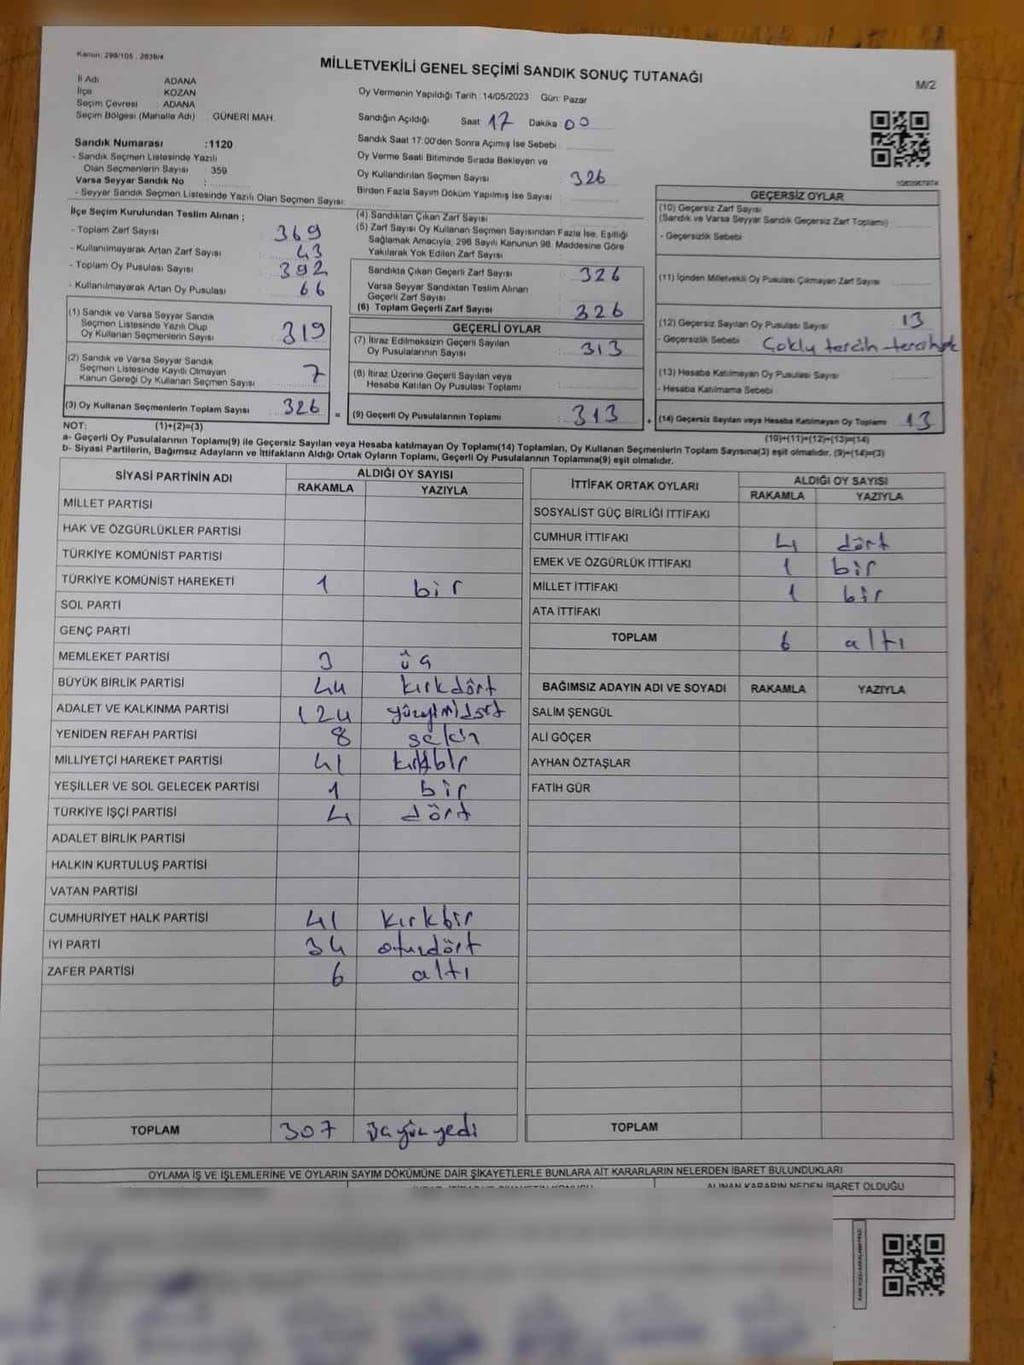 Kanun: 298/105 , 2839/4
MİLLETVEKİLİ GENEL SEÇİMİ SANDIK SONUÇ TUTANAĞI
M/2
İl Adı ADANA
İlçe KOZAN
Seçim Çevresi ADANA
Seçim Bölgesi (Mahalle Adı) GÜNERİ MAH.
Sandık Numarası :1120
- Sandık Seçmen Listesinde Yazılı
Olan Seçmenlerin Sayısı : 359
Varsa Seyyar Sandık No :
- Seyyar Sandık Seçmen Listesinde Yazılı Olan Seçmen Sayısı:
Oy Vermenin Yapıldığı Tarih :14/05/2023 Gün: Pazar
Sandığın Açıldığı Saat 17 Dakika 00
Sandık Saat 17:00'den Sonra Açılmış İse Sebebi :
Oy Verme Saati Bitiminde Sırada Bekleyen ve
Oy Kullandırılan Seçmen Sayısı : 326
Birden Fazla Sayım Döküm Yapılmış İse Sayısı :
İlçe Seçim Kurulundan Teslim Alınan ;
- Toplam Zarf Sayısı 369
- Kullanılmayarak Artan Zarf Sayısı 43
- Toplam Oy Pusulası Sayısı 392
- Kullanılmayarak Artan Oy Pusulası 66
(1) Sandık ve Varsa Seyyar Sandık
Seçmen Listesinde Yazılı Olup
Oy Kullanan Seçmenlerin Sayısı 319
(2) Sandık ve Varsa Seyyar Sandık
Seçmen Listesinde Kayıtlı Olmayan
Kanun Gereği Oy Kullanan Seçmen Sayısı 7
(3) Oy Kullanan Seçmenlerin Toplam Sayısı 326 =
(4) Sandıktan Çıkan Zarf Sayısı
(5) Zarf Sayısı Oy Kullanan Seçmen Sayısından Fazla İse, Eşitliği
Sağlamak Amacıyla, 298 Sayılı Kanunun 98. Maddesine Göre
Yakılarak Yok Edilen Zarf Sayısı
Sandıkta Çıkan Geçerli Zarf Sayısı 326
Varsa Seyyar Sandıktan Teslim Alınan
Geçerli Zarf Sayısı
(6) Toplam Geçerli Zarf Sayısı 326
GEÇERLİ OYLAR
(7) İtiraz Edilmeksizin Geçerli Sayılan
Oy Pusulalarının Sayısı 313
(8) İtiraz Üzerine Geçerli Sayılan veya
Hesaba Katılan Oy Pusulası Toplamı
(9) Geçerli Oy Pusulalarının Toplamı 313 +
GEÇERSİZ OYLAR
(10) Geçersiz Zarf Sayısı
(Sandık ve Varsa Seyyar Sandık Geçersiz Zarf Toplamı)
- Geçersizlik Sebebi
(11) İçinden Milletvekili Oy Pusulası Çıkmayan Zarf Sayısı
(12) Geçersiz Sayılan Oy Pusulası Sayısı 13
- Geçersizlik Sebebi Çoklu tercih -
(13) Hesaba Katılmayan Oy Pusulası Sayısı :
- Hesaba Katılmama Sebebi :
(14) Geçersiz Sayılan veya Hesaba Katılmayan Oy Toplamı 13
NOT: (1)+(2)=(3) (10)+(11)+(12)+(13)=(14)
a- Geçerli Oy Pusulalarının Toplamı(9) ile Geçersiz Sayılan veya Hesaba katılmayan Oy Toplamı(14) Toplamları, Oy Kullanan Seçmenlerin Toplam Sayısına(3) eşit olmalıdır. (9)+(14)=(3)
b- Siyasi Partilerin, Bağımsız Adayların ve İttifakların Aldığı Ortak Oyların Toplamı, Geçerli Oy Pusulalarının Toplamına(9) eşit olmalıdır.
SİYASİ PARTİNİN ADI ALDIĞI OY SAYISI
RAKAMLA YAZIYLA
MİLLET PARTİSİ
HAK VE ÖZGÜRLÜKLER PARTİSİ
TÜRKİYE KOMÜNİST PARTİSİ
TÜRKİYE KOMÜNİST HAREKETİ 1 bir
SOL PARTİ
GENÇ PARTİ
MEMLEKET PARTİSİ 3 üç
BÜYÜK BİRLİK PARTİSİ 44 kırkdört
ADALET VE KALKINMA PARTİSİ 124
YENİDEN REFAH PARTİSİ 8 sekiz
MİLLİYETÇİ HAREKET PARTİSİ 41 kırkbir
YEŞİLLER VE SOL GELECEK PARTİSİ 1 bir
TÜRKİYE İŞÇİ PARTİSİ 4 dört
ADALET BİRLİK PARTİSİ
HALKIN KURTULUŞ PARTİSİ
VATAN PARTİSİ
CUMHURİYET HALK PARTİSİ 41 kırkbir
İYİ PARTİ 34 otuzdört
ZAFER PARTİSİ 6 altı
TOPLAM 307 üçyüzyedi
İTTİFAK ORTAK OYLARI ALDIĞI OY SAYISI
RAKAMLA YAZIYLA
SOSYALİST GÜÇ BİRLİĞİ İTTİFAKI
CUMHUR İTTİFAKI 4 dört
EMEK VE ÖZGÜRLÜK İTTİFAKI 1 bir
MİLLET İTTİFAKI 1 bir
ATA İTTİFAKI
TOPLAM 6 altı
BAĞIMSIZ ADAYIN ADI VE SOYADI RAKAMLA YAZIYLA
SALİM ŞENGÜL
ALİ GÖÇER
AYHAN ÖZTAŞLAR
FATİH GÜR
TOPLAM
OYLAMA İŞ VE İŞLEMLERİNE VE OYLARIN SAYIM DÖKÜMÜNE DAİR ŞİKAYETLERLE BUNLARA AİT KARARLARIN NELERDEN İBARET BULUNDUKLARI
ALINAN KARARIN NEDEN İBARET OLDUĞU